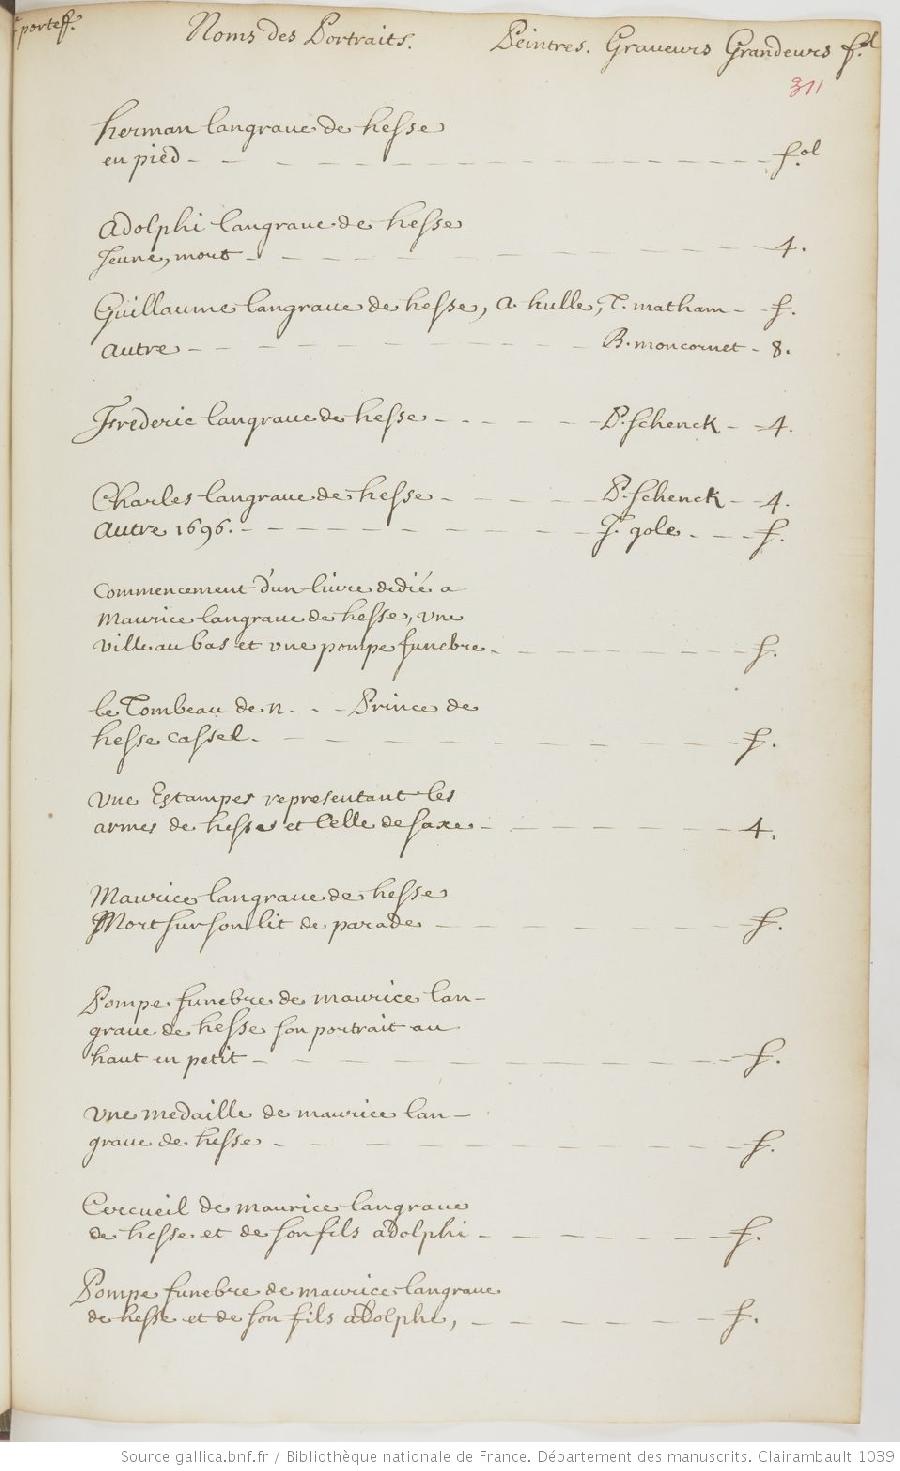 portef. Noms des Portraits. Peintres. Graveurs Grandeurs f.ol
311
herman langraue de hesse
en pied - - - f.ol
Adolphe langraue de hesse
Jeune, mort - - - 4.
Guillaume langraue de hesse, A. hulle, T. matham - - f.
autre - - - B. moncornet - 8.
Frederic langraue de hesse - - - P. Schenck - - 4.
Charles langraue de hesse - - - P. Schenck - - 4.
autre 1696. - - - J. gole - - - f.
commencement d'un liure dedié a
Maurice langraue de hesse, vne
ville au bas et vne pompe funebre - - - f.
le Tombeau de n. - - Prince de
hesse cassel. - - - f.
vne Estampes representant les
armes de hesses et Celle de saxe - - - 4.
Maurice langraue de hesse
Mort sur son lit de parade - - - f.
Pompe funebre de maurice lan-
graue de hesse son portrait au
haut en petit - - - f.
vne medaille de maurice lan-
graue de hesse - - - f.
Cercueil de maurice langraue
de hesse et de son fils adolphe - - - f.
Pompe funebre de maurice langraue
de hesse et de son fils adolphe, - - - f.
Source gallica.bnf.fr / Bibliothèque nationale de France. Département des manuscrits. Clairambault 1039